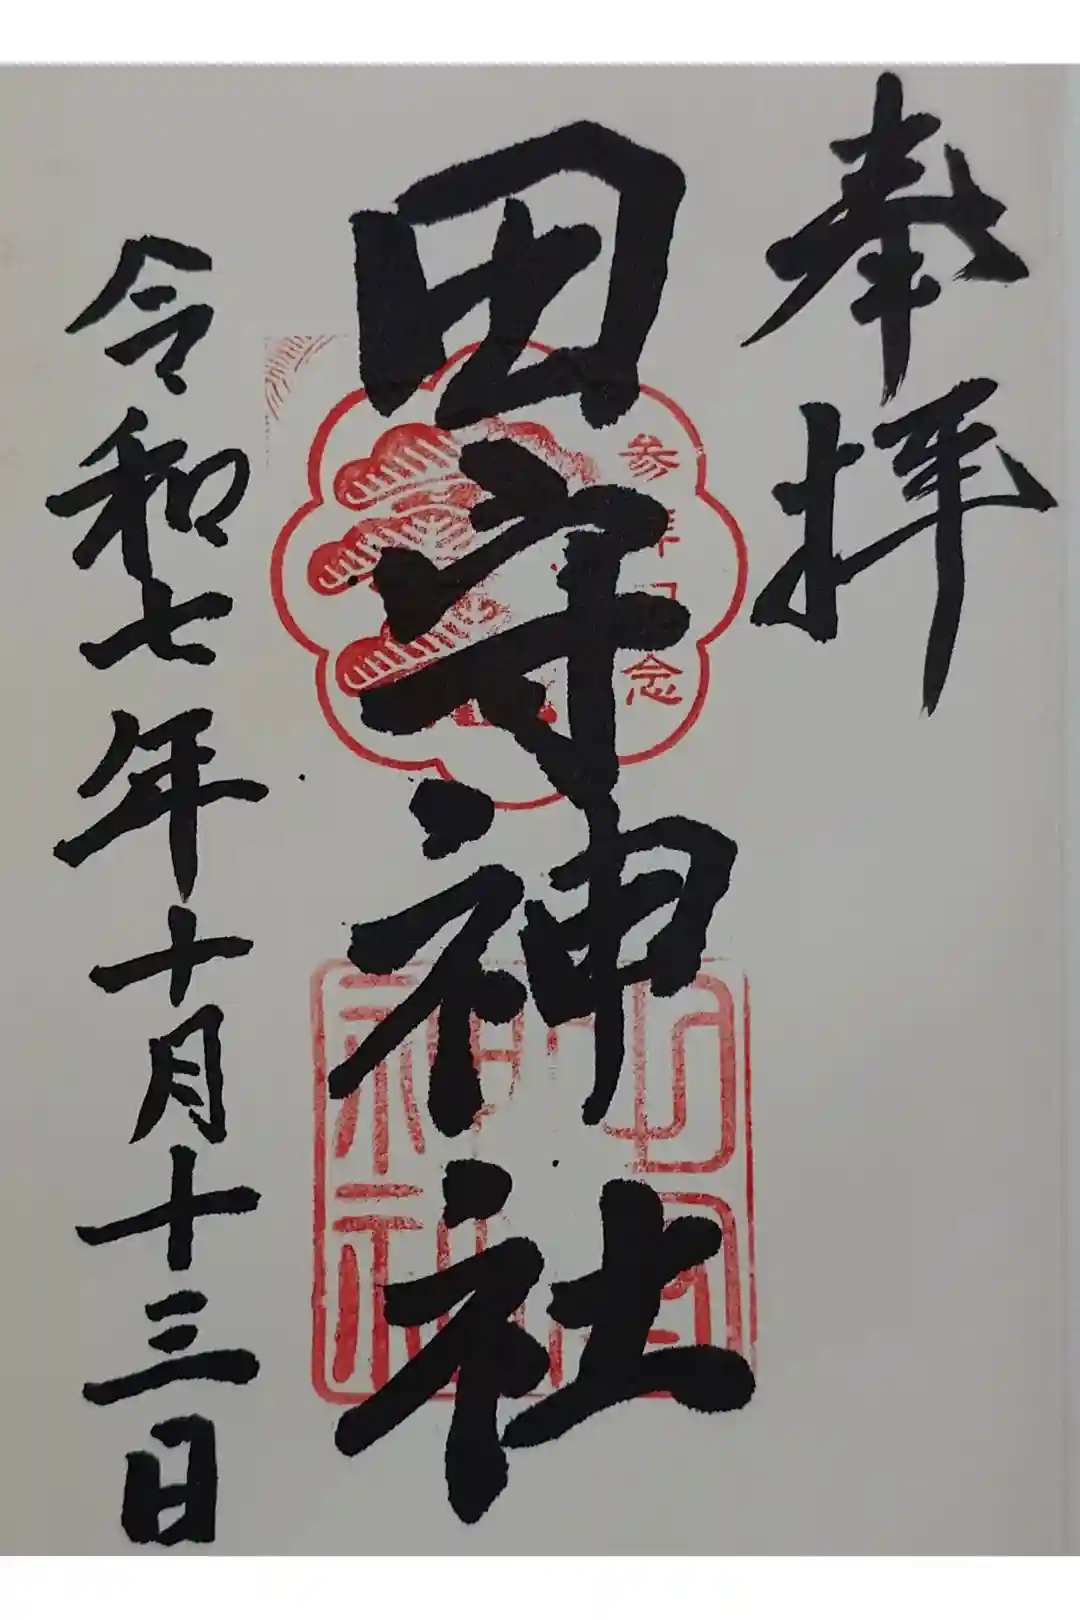 奉拝
田守神社
参拝記念
令和七年十月十三日